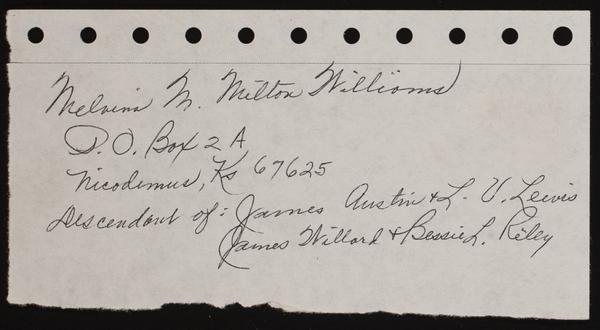 Melvina M. Milton Williams
P.O. Box 2 A
Nicodemus, Ks 67625
Descendant of: James Austin & L. V. Lewis
James Willard & Bessie L. Riley